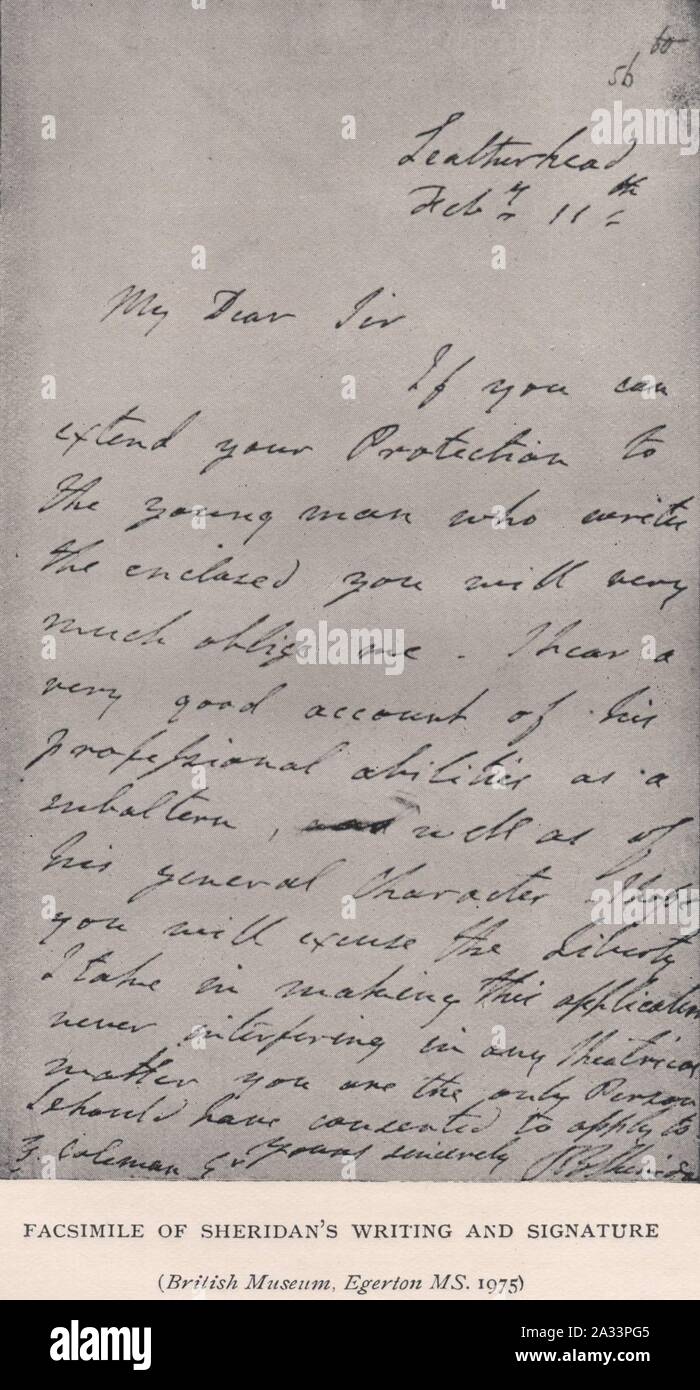 60
56
Leatherhead
Feby 11th
My Dear Sir
If you can
extend your Protection to
the young man who writes
the enclosed you will very
much oblige me - I hear a
very good account of his
professional abilities as a
subaltern, well as of
his general Character - I hope
you will excuse the Liberty
I take in making this application
never interfering in any Theatrical
matter you are the only Person
I should have consented to apply to
Yours sincerely
Coleman RB Sheridan
FACSIMILE OF SHERIDAN'S WRITING AND SIGNATURE
(British Museum, Egerton MS. 1975)
a
alamy
alamy
Image ID: A33PG5
www.alamy.com